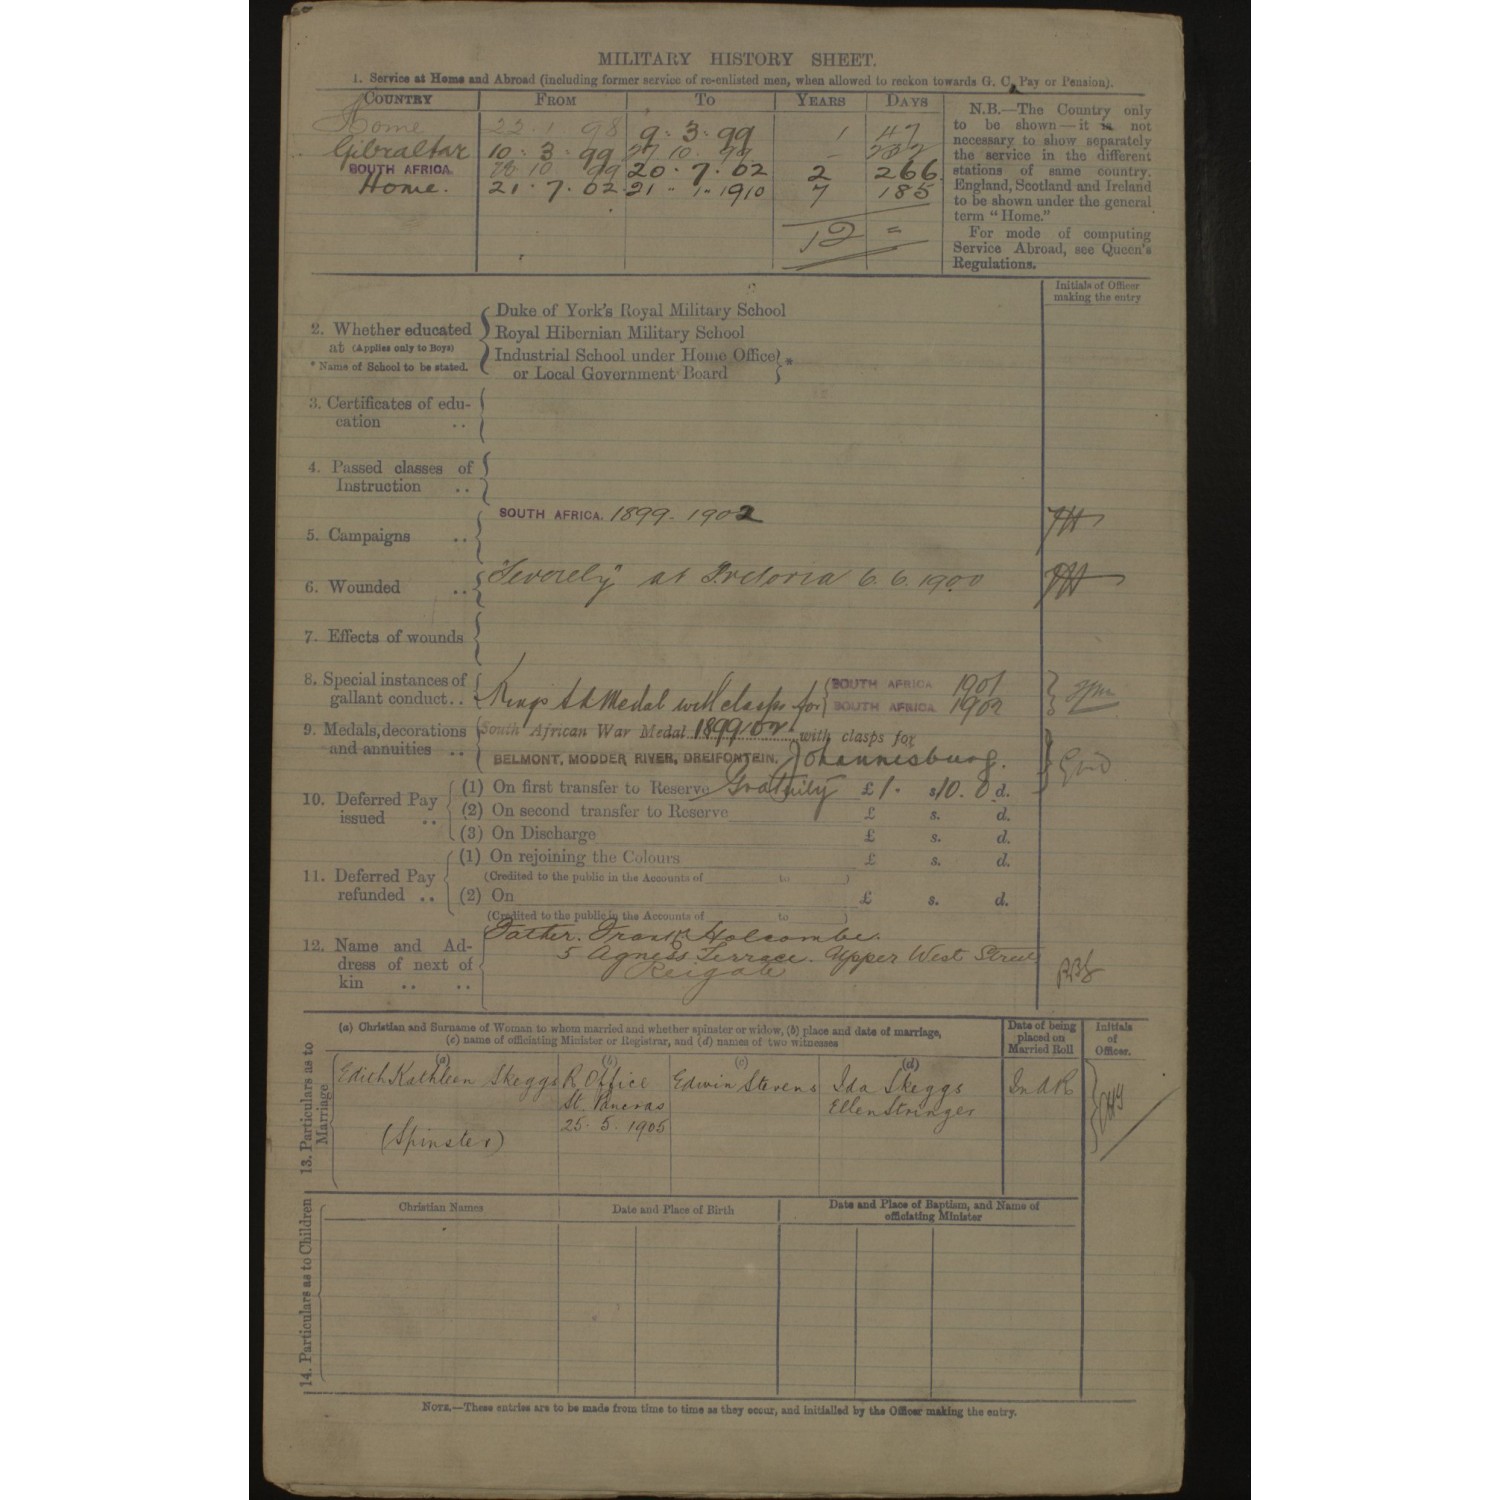 MILITARY HISTORY SHEET.
1. Service at Home and Abroad (including former service of re-enlisted men, when allowed to reckon towards G. C. Pay or Pension).
COUNTRY FROM TO YEARS DAYS
Home 22 . 1 98 9 . 3 . 99 1 47
Gibraltar 10 . 3 . 99 27 10 . 99 - 232
SOUTH AFRICA. 28 10 99 20 . 7 . 02 2 266
Home. 21 . 7 . 02 21 . 1 . 1910 7 185
12 =
N.B.—The Country only
to be shown—it is not
necessary to show separately
the service in the different
stations of same country.
England, Scotland and Ireland
to be shown under the general
term "Home."
For mode of computing
Service Abroad, see Queen's
Regulations.
Initials of Officer
making the entry
2. Whether educated
at (Applies only to Boys)
* Name of School to be stated.
Duke of York's Royal Military School
Royal Hibernian Military School
Industrial School under Home Office
or Local Government Board *
3. Certificates of edu-
cation ..
4. Passed classes of
Instruction ..
5. Campaigns .. SOUTH AFRICA. 1899 - 1902
6. Wounded .. "Severely" at Pretoria 6. 6. 1900
7. Effects of wounds
8. Special instances of
gallant conduct..
Kings SA Medal with clasps for
SOUTH AFRICA 1901
SOUTH AFRICA 1902
9. Medals, decorations
and annuities ..
South African War Medal 1899/02 with clasps for
BELMONT, MODDER RIVER, DREIFONTEIN, Johannesburg.
10. Deferred Pay
issued ..
(1) On first transfer to Reserve Gratuity £1. s10. 0 d.
(2) On second transfer to Reserve £ s. d.
(3) On Discharge £ s. d.
11. Deferred Pay
refunded ..
(1) On rejoining the Colours £ s. d.
(Credited to the public in the Accounts of to )
(2) On £ s. d.
(Credited to the public in the Accounts of to )
12. Name and Ad-
dress of next of
kin .. ..
Father. Frank Holcombe.
5 Agness Terrace. Upper West Street
Reigate
13. Particulars as to
Marriage
(a) Christian and Surname of Woman to whom married and whether spinster or widow, (b) place and date of marriage,
(c) name of officiating Minister or Registrar, and (d) names of two witnesses
Date of being
placed on
Married Roll
Initials
of
Officer.
(a) (b) (c) (d)
Edith Kathleen Skeggs R Office Edwin Stevens Ida Skeggs
St. Pancras Ellen Stringer
(Spinster) 25 . 5 . 1905
14. Particulars as to Children
Christian Names Date and Place of Birth Date and Place of Baptism, and Name of
officiating Minister
NOTE.—These entries are to be made from time to time as they occur, and initialled by the Officer making the entry.